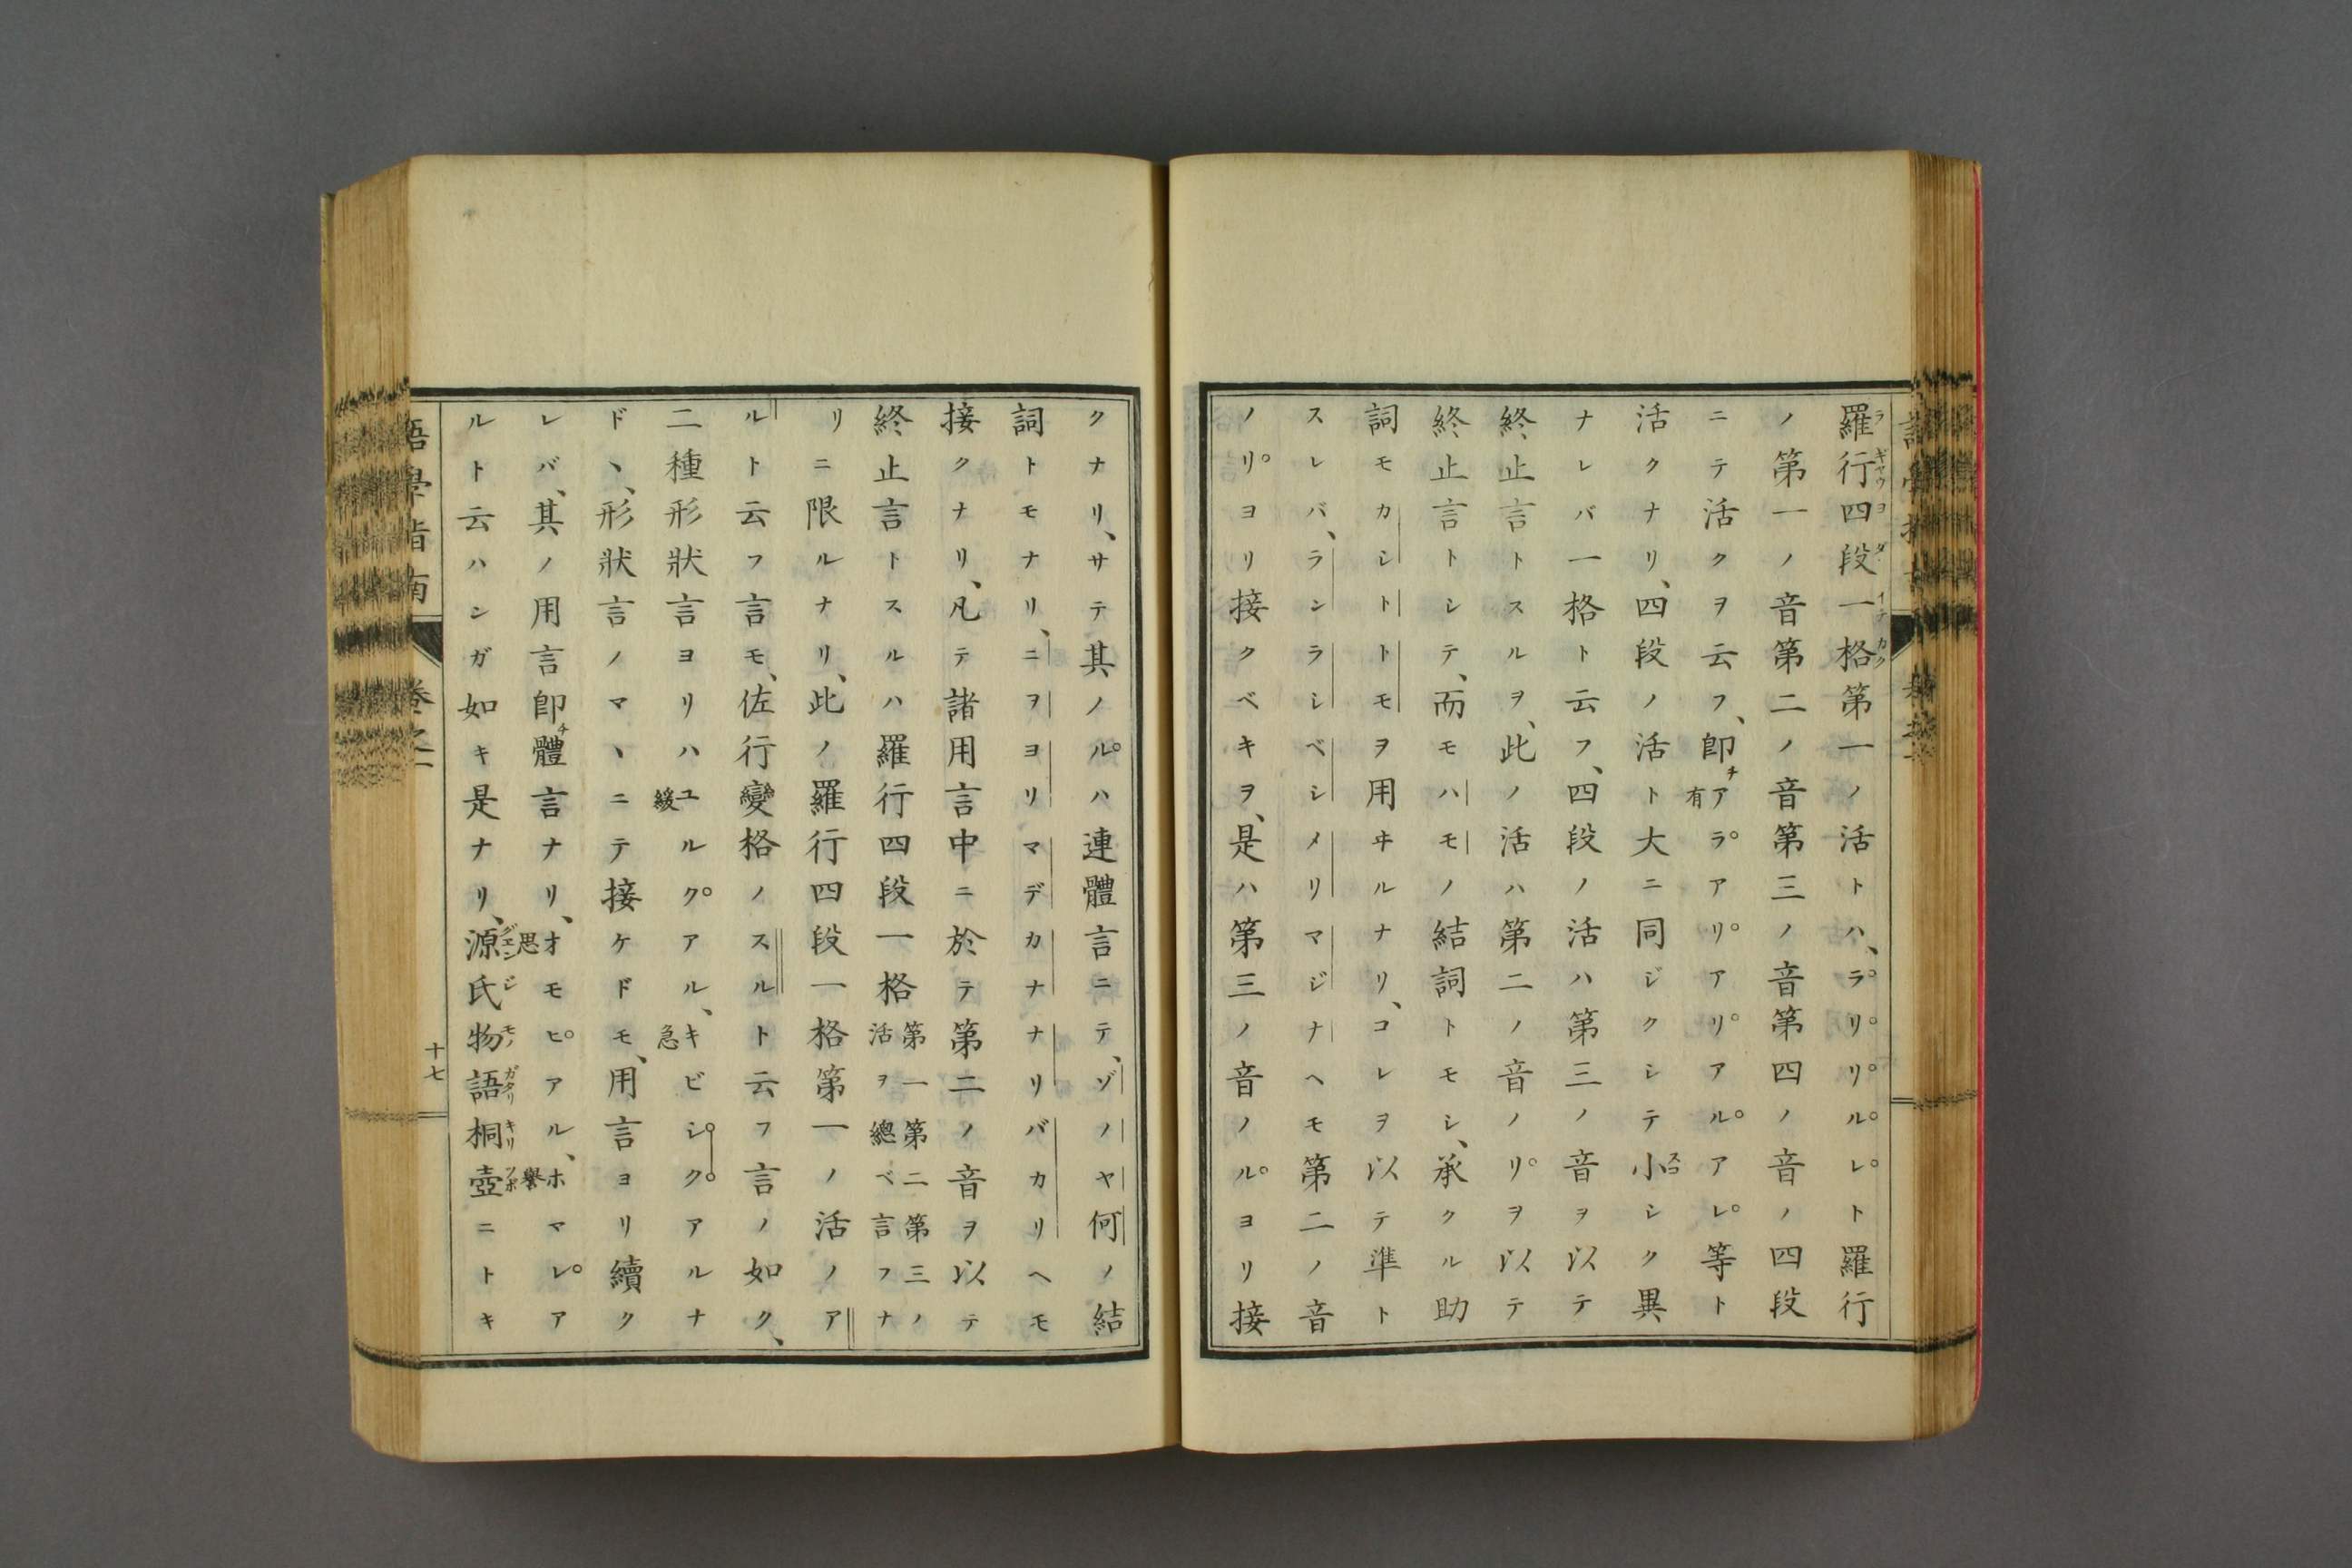 羅行四段一格第一ノ活トハ、ラリリルレト羅行
ノ第一ノ音第二ノ音第三ノ音第四ノ音ノ四段
ニテ活クヲ云フ、卽チアラアリアリアルアレ等ト
有
活クナリ、四段ノ活ト大ニ同ジクシテ小シク異
ナレバ一格ト云フ、四段ノ活ハ第三ノ音ヲ以テ
終止言トスルヲ、此ノ活ハ第二ノ音ノリヲ以テ
終止言トシテ、而モハモノ結詞トモシ、承クル助
詞モカシトトモヲ用ヰルナリ、コレヲ以テ準ト
スレバ、ランラシベシメリマジナヘモ第二ノ音
ノリヨリ接クベキヲ、是ハ第三ノ音ノルヨリ接
クナリ、サテ其ノルハ連體言ニテ、ゾノヤ何ノ結
詞トモナリ、ニヲヨリマデカナナリバカリヘモ
接クナリ、凡テ諸用言中ニ於テ第二ノ音ヲ以テ
終止言トスルハ羅行四段一格
第一第二第三ノ
活ヲ總ベ言フナ
リニ限ルナリ、此ノ羅行四段一格第一ノ活ノア
ルト云フ言モ、佐行變格ノスルト云フ言ノ如ク、
二種形狀言ヨリハユルクアル、キビシクアルナ
緩
急
ド、、形狀言ノマヽニテ接ケドモ、用言ヨリ續ク
レバ、其ノ用言卽チ體言ナリ、オモヒアル、ホマレア
思
譽
ルト云ハンガ如キ是ナリ、源氏物語桐壺ニトキ
語學指南
卷之二
十七